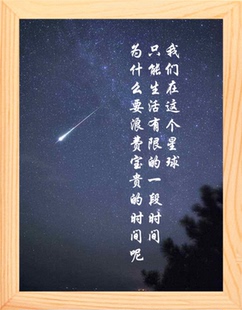 我们在这个星球
只能生活有限的一段时间
为什么要浪费宝贵的时间呢